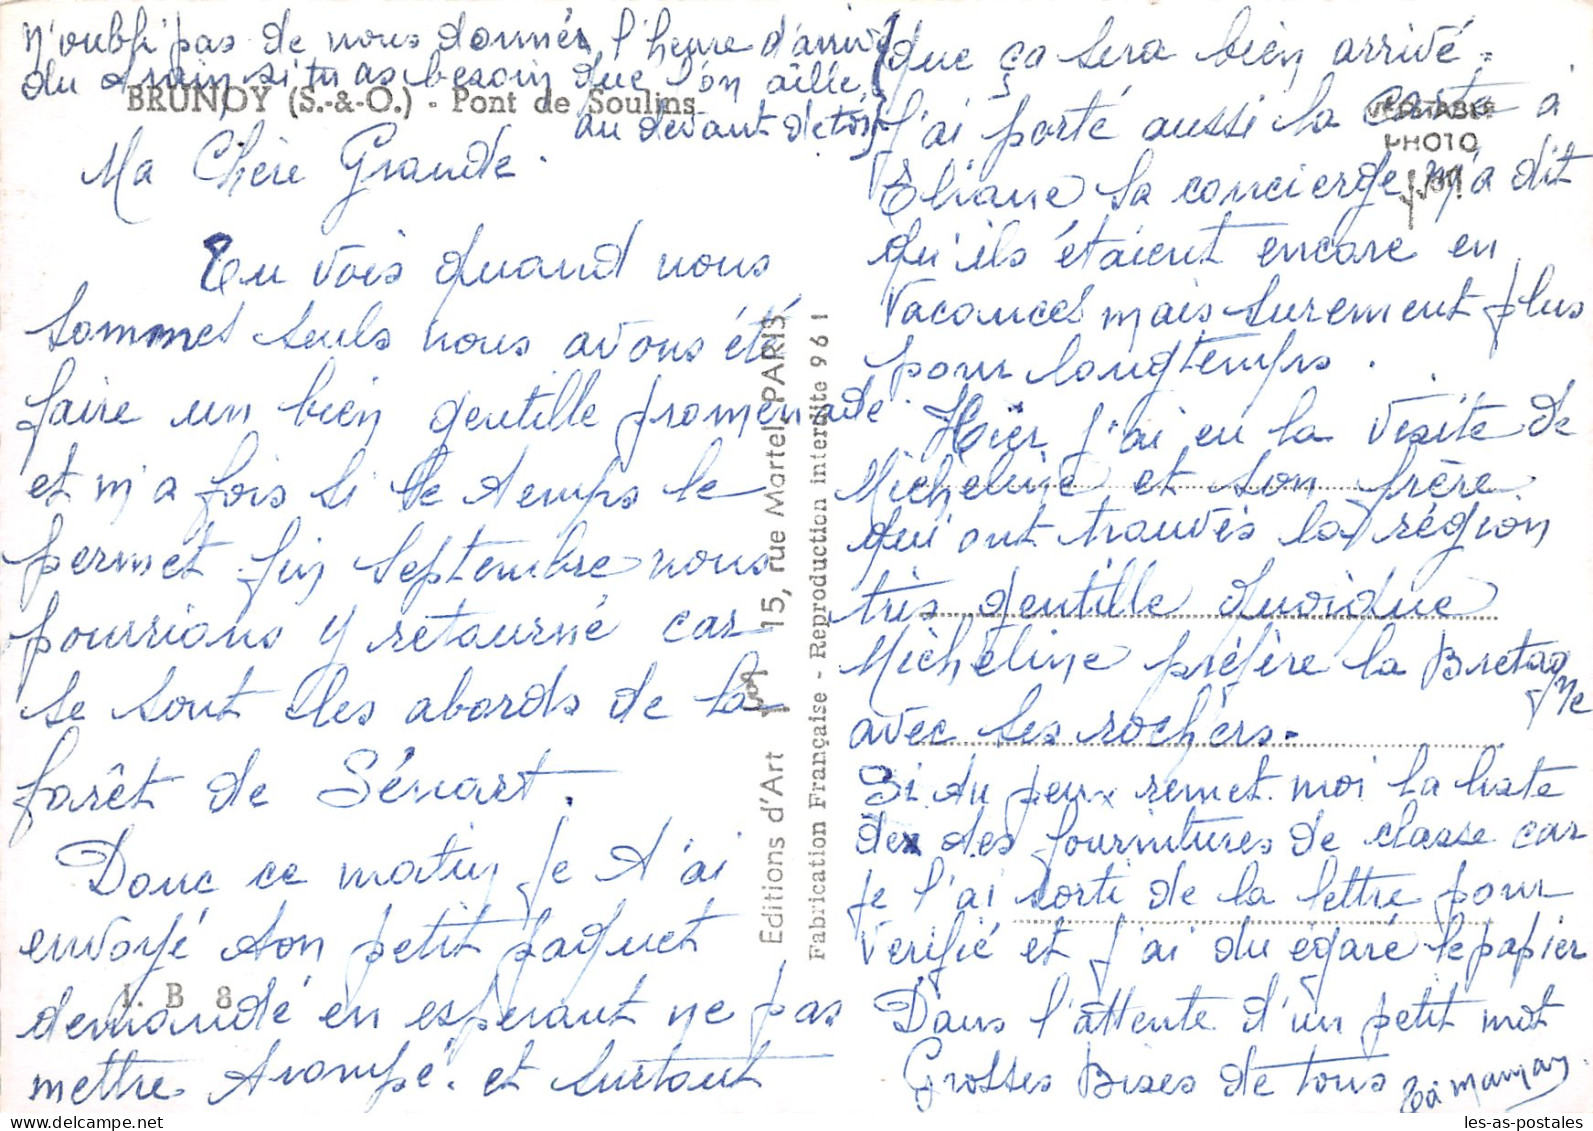 n'oubli pas de nous donner l'heure d'arrivé
du train si tu as besoin que l'on aille
au devant de toi
BRUNOY (S.-&-O.) - Pont de Soulins
Ma Chère Grande.
Tu vois quand nous
sommes seuls nous avons été
faire un bien gentille promenade
et m'a fois si le temps le
permet fin septembre nous
pourrions y retourné car
se sont les abords de la
forêt de Sénart.
Donc ce matin je t'ai
envoyé ton petit paquet
demandé en esperant ne pas
mettre trompé. et surtout
I. B 8
Editions d'Art 15, rue Martel, PARIS
Fabrication Française - Reproduction interdite 961
que ça sera bien arrivé.
J'ai porté aussi la carte a
Eliane la concierge m'a dit
qu'ils étaient encore en
vacances mais surement plus
pour longtemps.
Hier j'ai eu la visite de
Micheline et son frère.
qui ont trouvés la région
très gentille quoique
Micheline préfère la Bretagne
avec ses rochers.
Si tu peux remet moi la liste
des fournitures de classe car
je l'ai sorti de la lettre pour
verifié et j'ai du égaré le papier
Dans l'attente d'un petit mot
Grosses Bises de tous
Ta maman
VÉRITABLE
PHOTO
les-as-postales.com